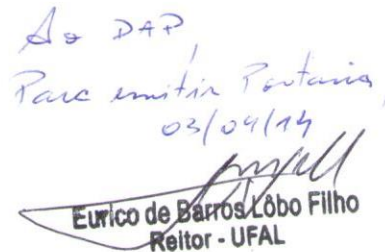 Ao DAP,
Para emitir Portaria,
03/04/14
Eurico de Barros Lôbo Filho
Reitor - UFAL